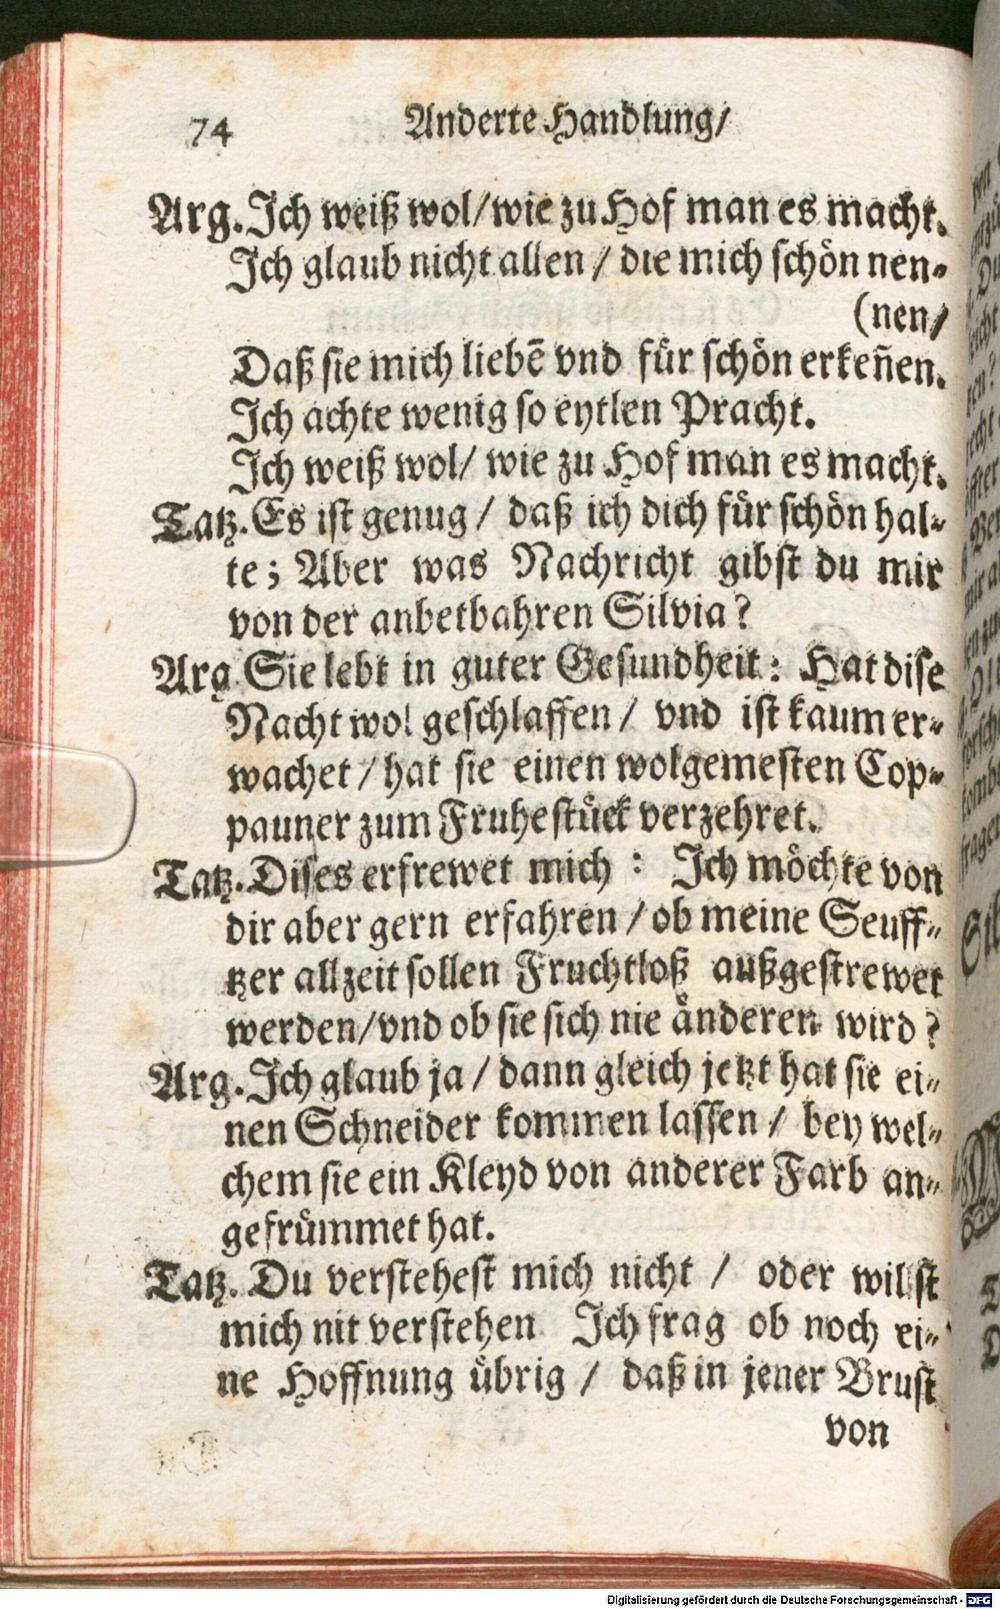 74 Anderte Handlung/
Arg. Ich weiß wol/ wie zu Hof man es macht.
Ich glaub nicht allen / die mich schön nen-
(nen/
Daß sie mich liebẽ vnd für schön erkeñen.
Ich achte wenig so eytlen Pracht.
Ich weiß wol/ wie zu Hof man es macht.
Tatz. Es ist genug / daß ich dich für schön hal-
te; Aber was Nachricht gibst du mir
von der anbetbahren Silvia?
Arg Sie lebt in guter Gesundheit: Hat dise
Nacht wol geschlaffen / vnd ist kaum er-
wachet / hat sie einen wolgemesten Cop-
pauner zum Fruhestück verzehret.
Tatz. Dises erfrewet mich : Ich möchte von
dir aber gern erfahren / ob meine Seuff-
tzer allzeit sollen Fruchtloß außgestrewet
werden/ vnd ob sie sich nie änderen wird?
Arg. Ich glaub ja / dann gleich jetzt hat sie ei-
nen Schneider kommen lassen / bey wel-
chem sie ein Kleyd von anderer Farb an-
gefrümmet hat.
Tatz. Du verstehest mich nicht / oder wilst
mich nit verstehen Ich frag ob noch ei-
ne Hoffnung übrig / daß in jener Brust
von
Digitalisierung gefördert durch die Deutsche Forschungsgemeinschaft - DFG